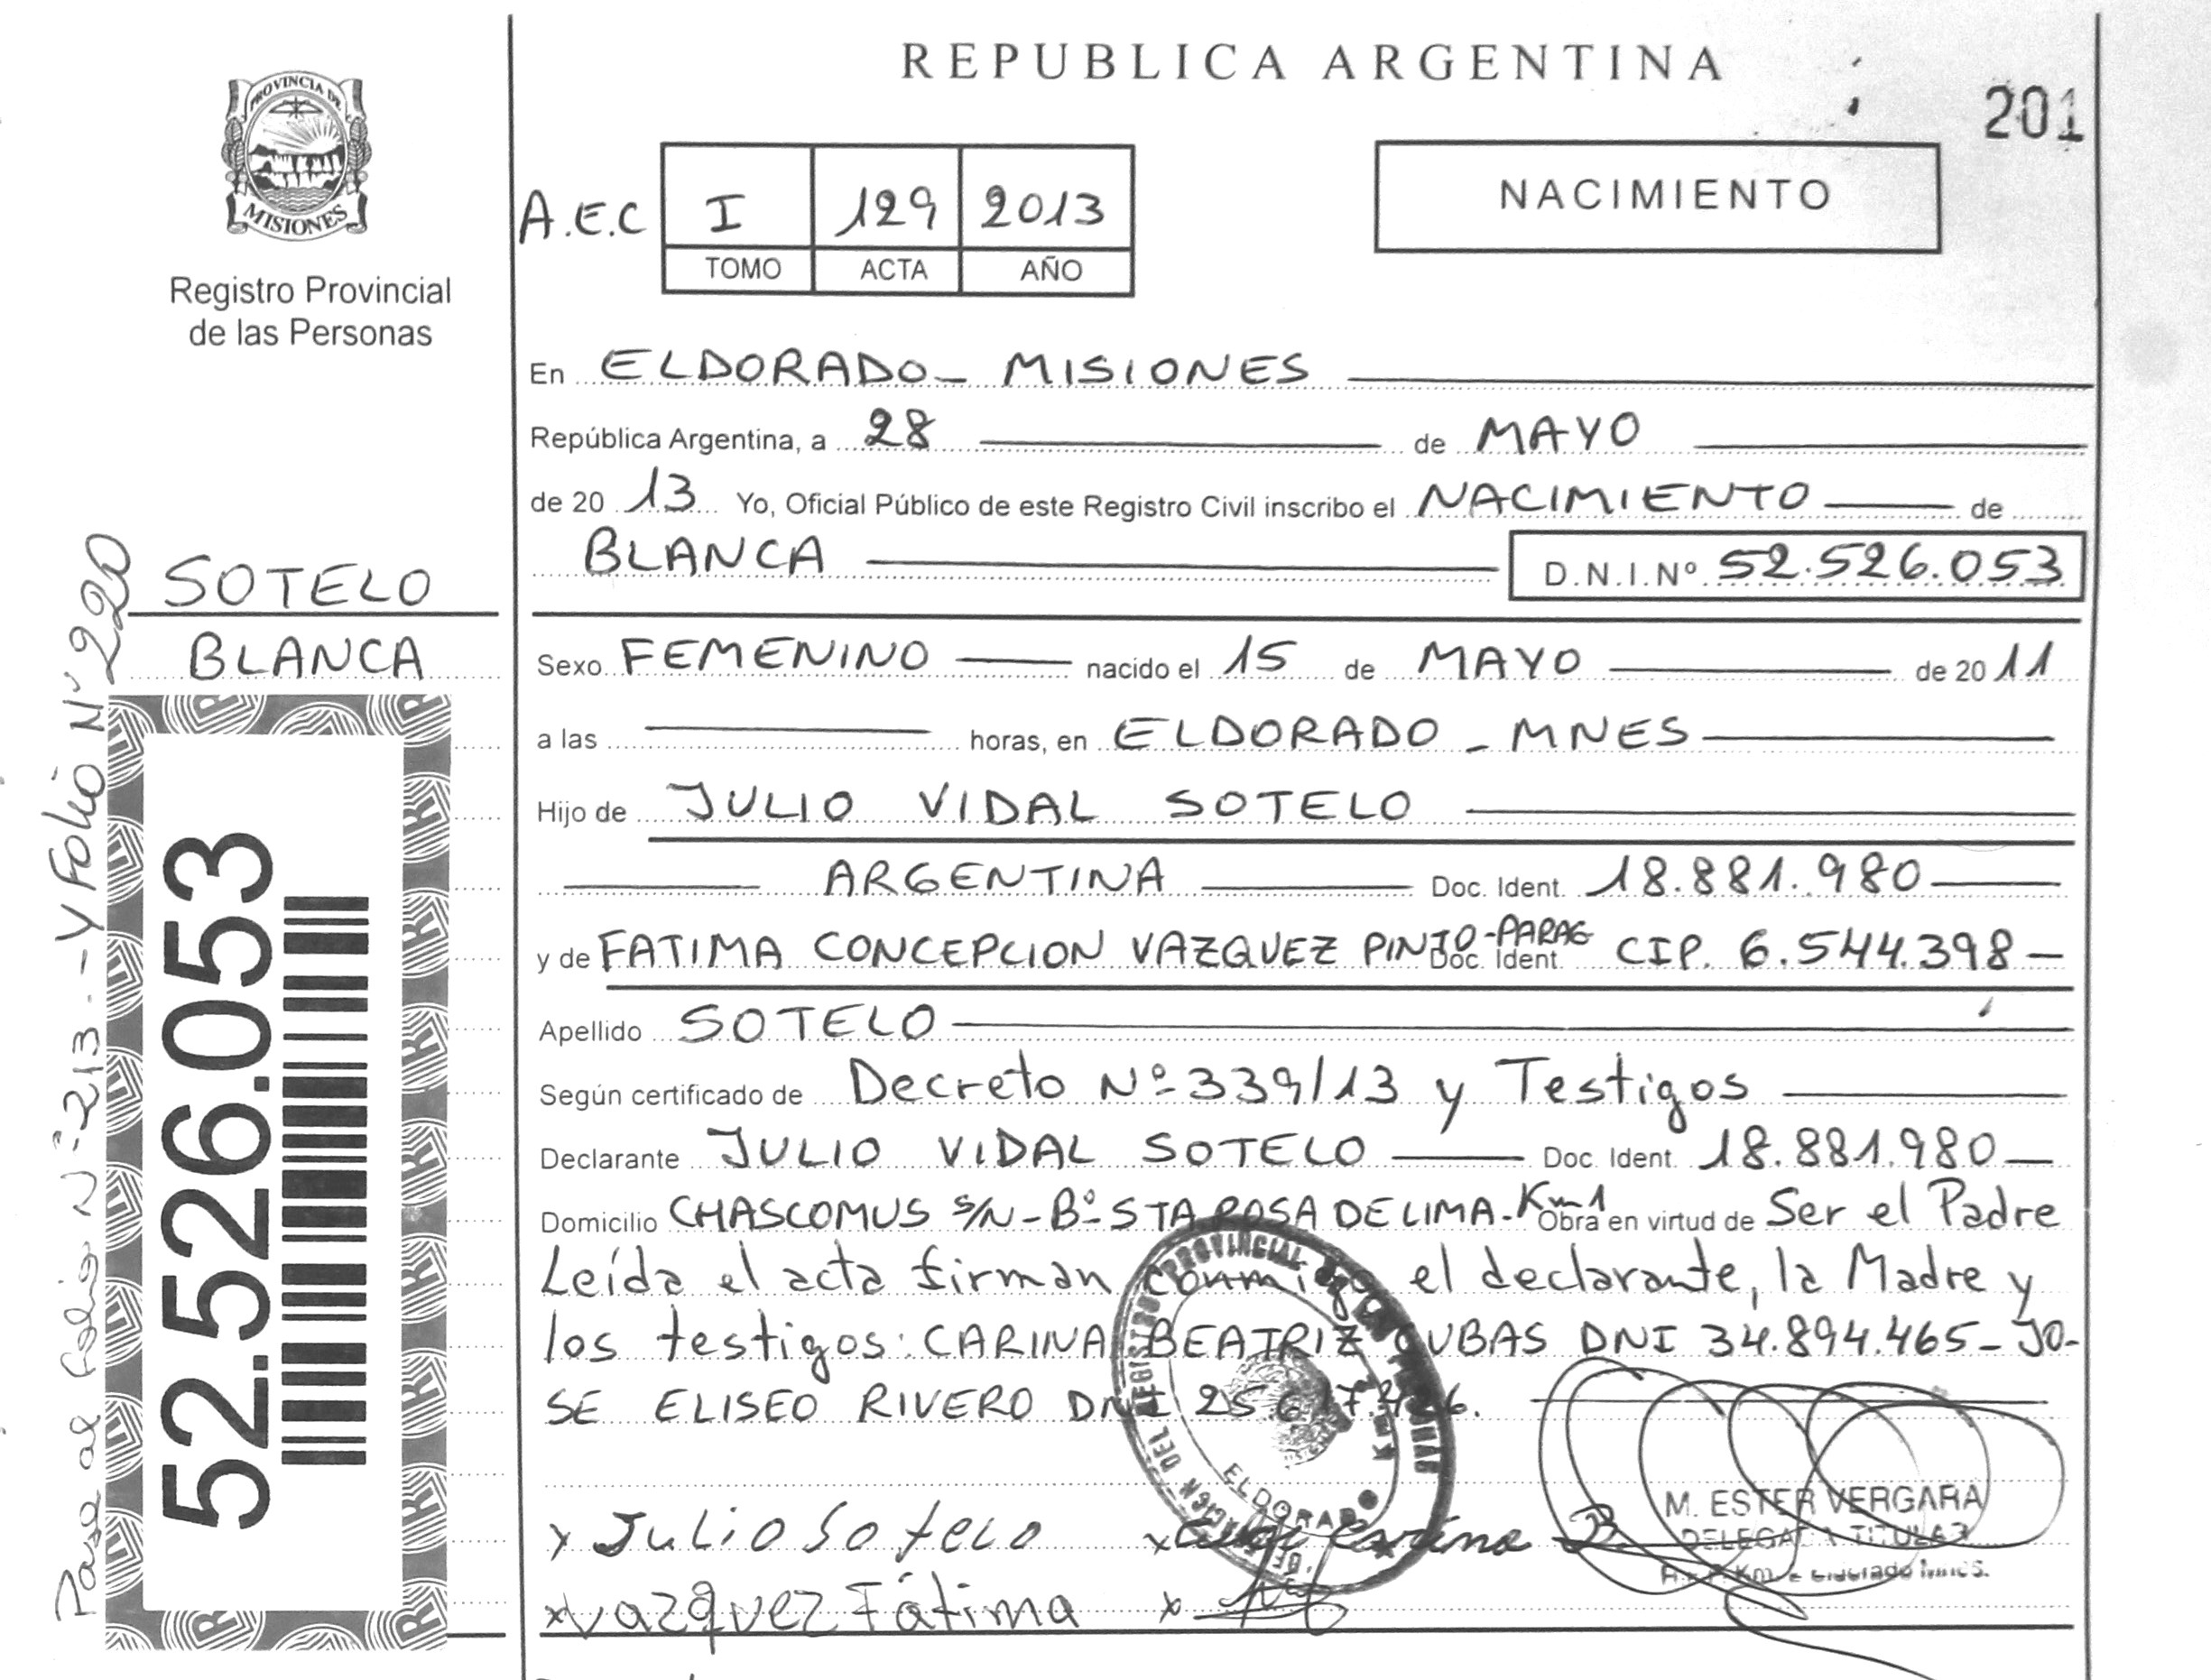 REPUBLICA ARGENTINA
201
PROVINCIA DE
MISIONES
Registro Provincial
de las Personas
A.E.C
I 129 2013
TOMO ACTA AÑO
NACIMIENTO
En ELDORADO - MISIONES
República Argentina, a 28 de MAYO
de 20 13 Yo, Oficial Público de este Registro Civil inscribo el NACIMIENTO de
BLANCA D.N.I.Nº 52.526.053
SOTELO
BLANCA
Sexo FEMENINO nacido el 15 de MAYO de 20 11
a las horas, en ELDORADO - MNES
Hijo de JULIO VIDAL SOTELO
ARGENTINA Doc. Ident. 18.881.980
y de FATIMA CONCEPCION VAZQUEZ PINTO-PARAG Doc. Ident. CIP. 6.544.398
Apellido SOTELO
Según certificado de Decreto Nº 339/13 y Testigos
Declarante JULIO VIDAL SOTELO Doc. Ident. 18.881.980
Domicilio CHASCOMUS S/N - Bº STA ROSA DE LIMA - Km 1 Obra en virtud de Ser el Padre
Leída el acta firman conmigo el declarante, la Madre y
los testigos: CARINA BEATRIZ CUBAS DNI 34.894.465 - JO-
SE ELISEO RIVERO DNI
Julio Sotelo
Vazquez Fátima
ELDORADO
M. ESTER VERGARA
DELEGADA TITULAR
52.526.053
Pasa al folio Nº 213.- Y Folio Nº 220